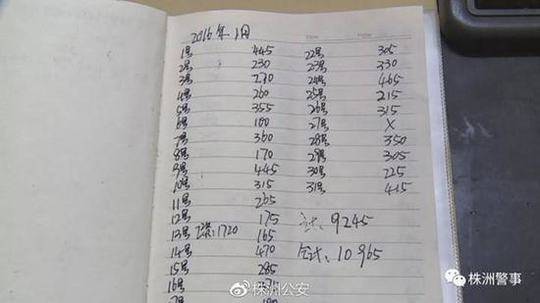 2016年1月
1号 445
2号 230
3号 270
4号 260
5号 355
6号 100
7号 360
8号 170
9号 445
10号 315
11号 265
12号 175
13号 1720 165
14号 470
15号 285
16号
22号 305
23号 330
24号 465
25号 215
26号 315
27号 X
28号 350
29号 305
30号 225
31号 415
9245
10965
株洲公安
株洲警事